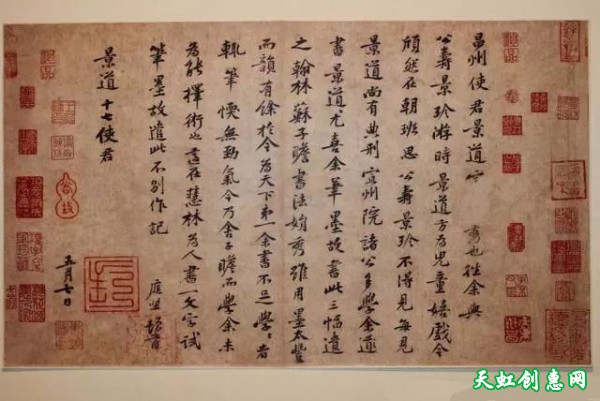 昌州使君景道宗
秀也往余與
公壽景珍游時景道方為兒童嬉戲今
頎然在朝班思公壽景珍不得見每見
景道尚有典刑宣州院諸公多學余
書景道尤喜余筆墨故書此三幅遺
之翰林蘇子瞻書法娟秀雖用墨太豐
而韻有餘於今為天下第一余書不足學〻者
輒筆愞無勁氣今乃舍子瞻而學余未
為能擇術也適在慧林為人書一文字試
筆墨故遣此不別作記
庭堅頓首
景道十七使君
五月七日
天虹创惠网